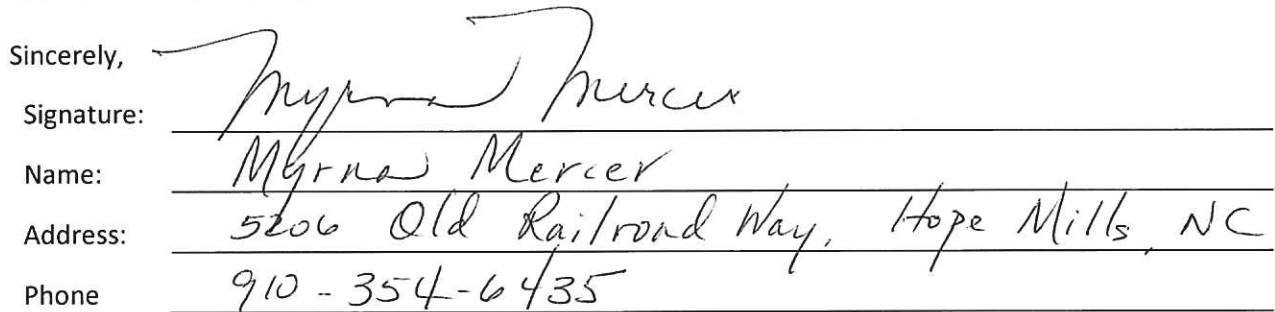 Sincerely,
Signature: Myrna Mercer
Name: Myrna Mercer
Address: 5206 Old Railroad Way, Hope Mills, NC
Phone 910-354-6435